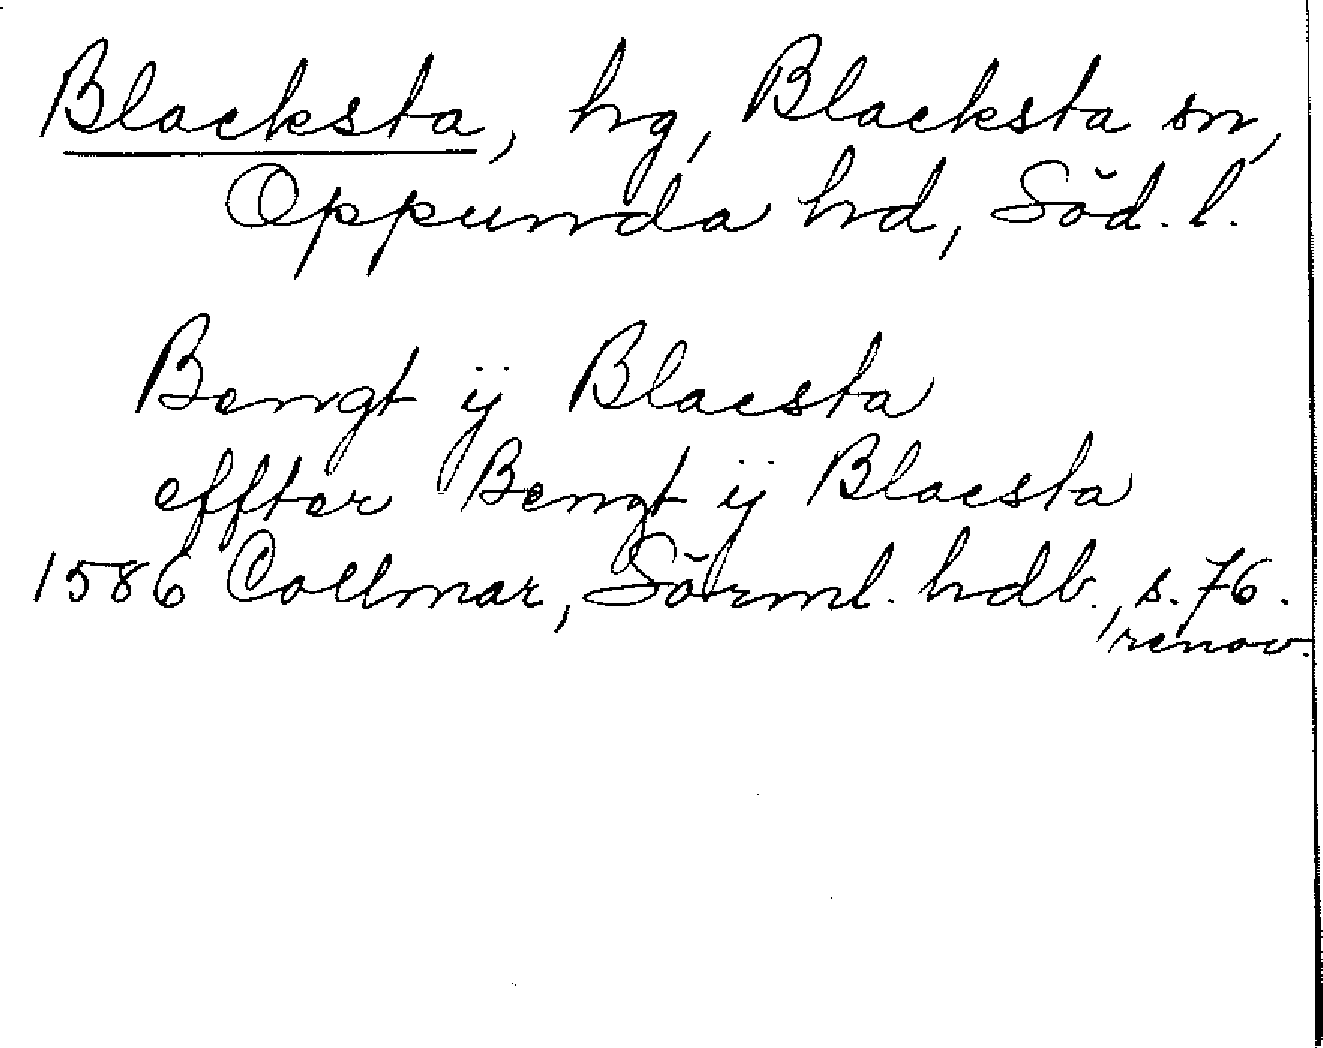 Blacksta, hg, Blacksta sn,
Oppunda hd, Söd. l.
Bengt ÿ Blacsta
effter Bengt ÿ Blacsta
1586 Collmar, Sörml. hdb., s. 76.
renov.